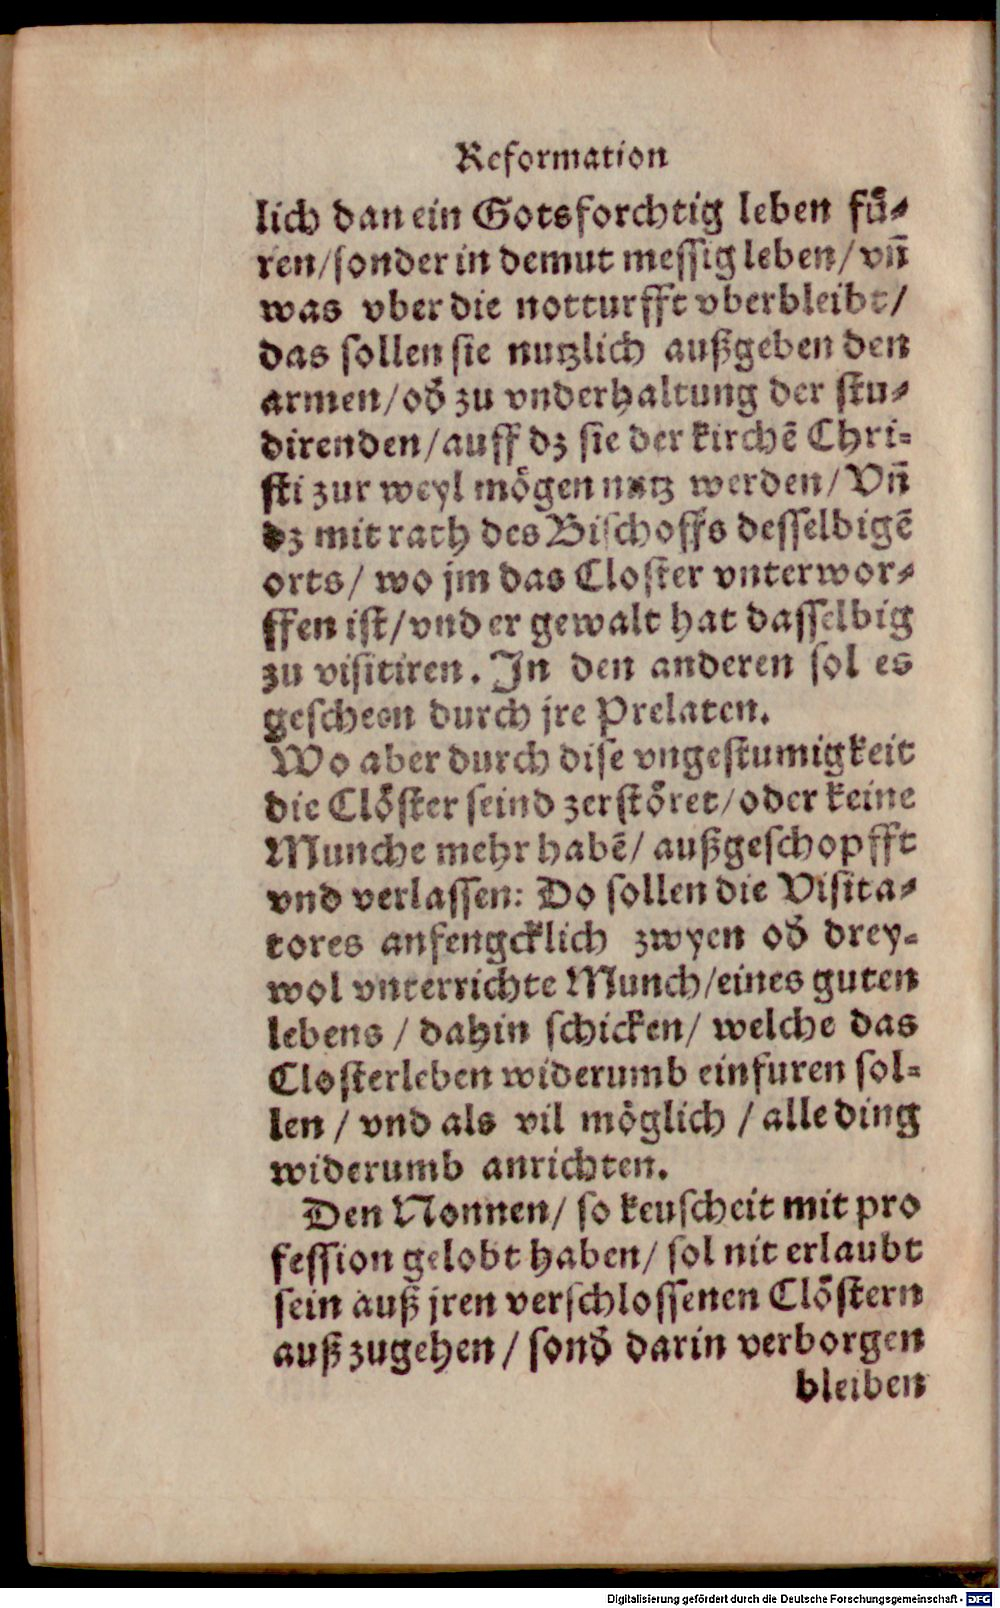 Reformation
lich dan ein Gotsforchtig leben fuͤ⸗
ren/sonder in demut messig leben/ vn̄
was vber die notturfft vberbleibt/
das sollen sie nutzlich außgeben den
armen/od̄ zu vnderhaltung der stu⸗
direnden/auff dz sie der kirchē Chri⸗
sti zur weyl moͤgen nutz werden/ Vn̄
dz mit rath des Bischoffs desselbigē
orts/ wo jm das Closter vnterwor⸗
ffen ist/vnd er gewalt hat dasselbig
zu visitiren. In den anderen sol es
gescheen durch jre Prelaten.
Wo aber durch dise vngestumigkeit
die Cloͤster seind zerstoͤret/oder keine
Munche mehr habē/ außgeschopfft
vnd verlassen: Do sollen die Visita⸗
tores anfengcklich zwyen od̄ drey⸗
wol vnterrichte Munch/eines guten
lebens / dahin schicken/ welche das
Closterleben widerumb einfuren sol⸗
len / vnd als vil moͤglich / alle ding
widerumb anrichten.
Den Nonnen/ so keuscheit mit pro
fession gelobt haben/ sol nit erlaubt
sein auß jren verschlossenen Cloͤstern
auß zugehen / sond̄ darin verborgen
bleiben
Digitalisierung gefördert durch die Deutsche Forschungsgemeinschaft - DFG